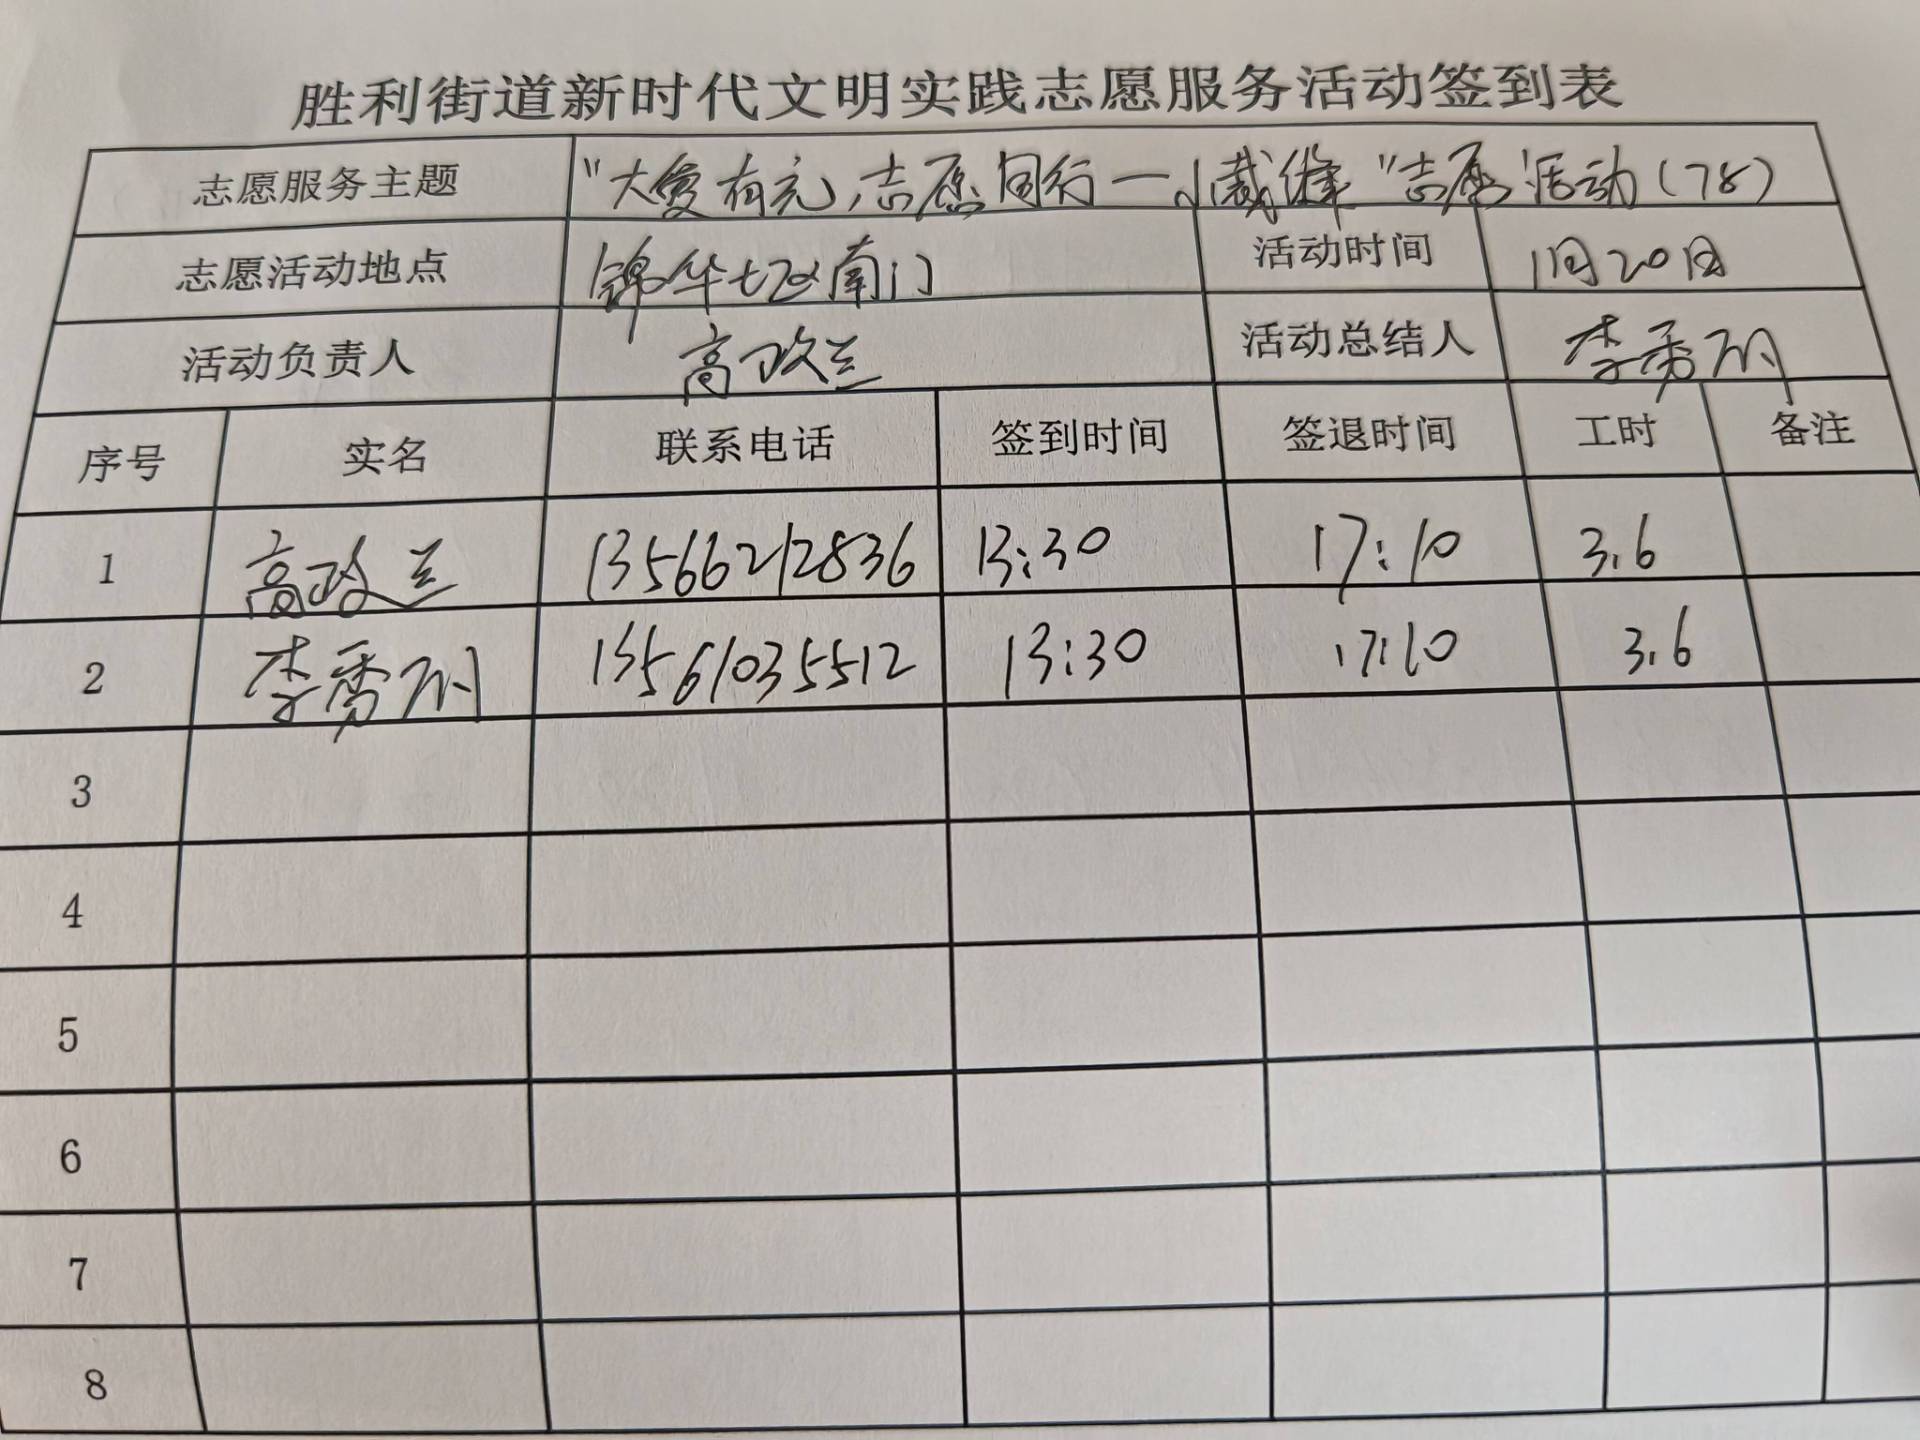 胜利街道新时代文明实践志愿服务活动签到表
志愿服务主题 "大爱有充,志愿同行—小裁缝"志愿活动(78)
志愿活动地点 锦华七区南门 活动时间 1月20日
活动负责人 高政兰 活动总结人 李秀
序号 实名 联系电话 签到时间 签退时间 工时 备注
1 高政兰 13566212836 13:30 17:10 3.6
2 李秀 13561035512 13:30 17:10 3.6
3
4
5
6
7
8